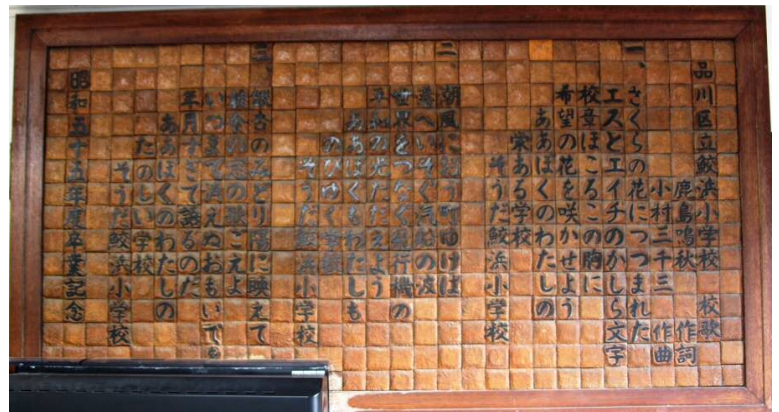 品川区立鮫浜小学校 校歌
鹿島鳴秋 作詞
小村三千三 作曲
一、さくらの花につつまれた
エスとエイチのかしら文字
校章ほこるこの胸に
希望の花を咲かせよう
ああぼくのわたしの
栄ある学校
そうだ鮫浜小学校
二、朝風におう町ゆけば
港へいそぐ汽船の波
世界をつなぐ飛行機の
平和の光たたえよう
ああぼくもわたしも
のびゆく学校
そうだ鮫浜小学校
三、銀杏のみどり陽に映えて
の窓の歌ごえよ
いつまで消えぬおもいでを
年月すぎて語るのだ
ああぼくのわたしの
たのしい学校
そうだ鮫浜小学校
昭和五十五年度卒業記念